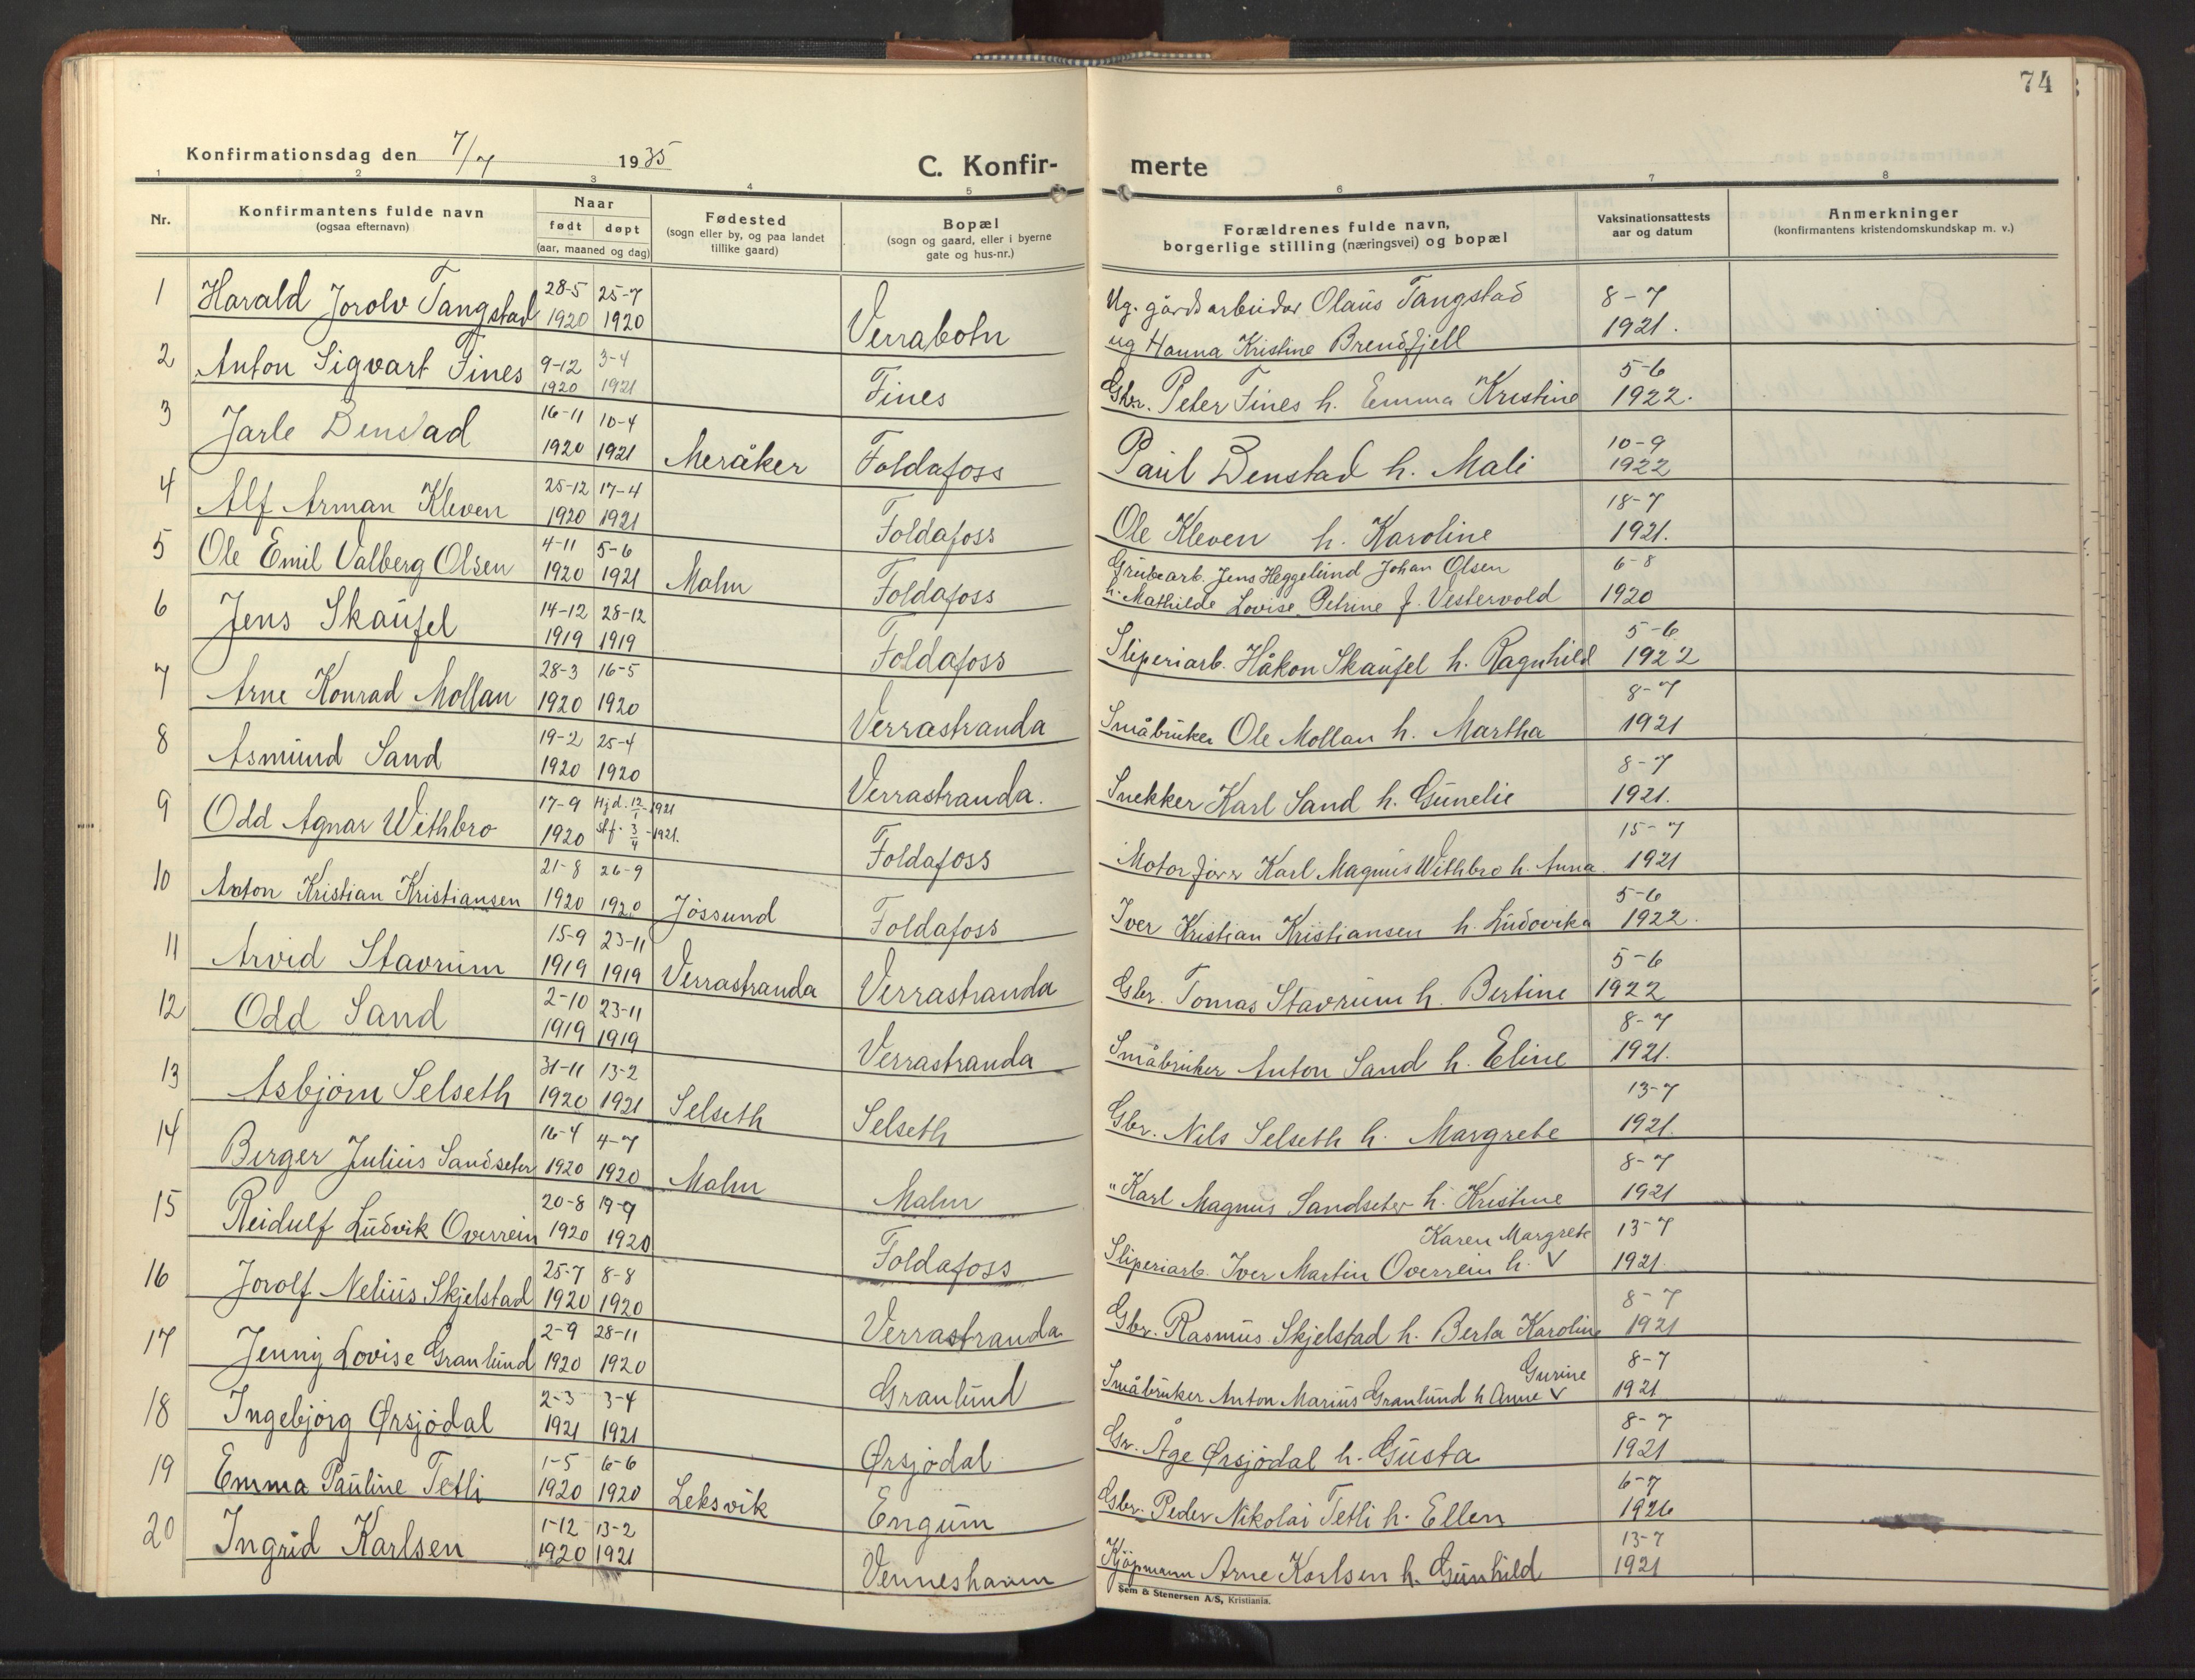 74
Konfirmationsdag den 7/7 1935
C. Konfir- merte
1 2 3 4 5 6 7 8
Nr.
Konfirmantens fulde navn
(ogsaa efternavn)
Naar
født døpt
(aar, maaned og dag)
Fødested
(sogn eller by, og paa landet
tillike gaard)
Bopæl
(sogn og gaard, eller i byerne
gate og hus-nr.)
Forældrenes fulde navn,
borgerlige stilling (næringsvei) og bopæl
Vaksinationsattests
aar og datum
Anmerkninger
(konfirmantens kristendomskundskap m. v.)
1 Harald Jorolv Tangstad 28-5 1920 25-7 1920 Verrabotn Ug. gårdsarbeider Olaus Tangstad
ug Hanna Kristine Brendfjell 8-7 1921.
2 Anton Sigvart Fines 9-12 1920 3-4 1921 Fines Gbr. Peter Fines h. Emma Kristine 5-6 1922.
3 Jarle Denstad 16-11 1920 10-4 1921 Meråker Foldafoss Paul Denstad h. Mali 10-9 1922
4 Alf Arman Kleven 25-12 1920 17-4 1921 Foldafoss Ole Kleven h. Karoline 18-7 1921.
5 Ole Emil Valberg Olsen 4-11 1920 5-6 1921 Malm Foldafoss Grubearb. Jens Heggelund Johan Olsen
h. Mathilde Lovise Petrine f. Vestervold 6-8 1920
6 Jens Skaufel 14-12 1919 28-12 1919 Foldafoss Sliperiarb. Håkon Skaufel h. Ragnhild 5-6 1922
7 Arne Konrad Mollan 28-3 1920 16-5 1920 Verrastranda Småbruker Ole Mollan h. Martha 8-7 1921
8 Asmund Sand 19-2 1920 25-4 1920 Verrastranda. Snekker Karl Sand h. Gunelie 8-7 1921.
9 Odd Agnar Withbro 17-9 1920 Hjd. 12/1-1921 stf. 3/4-1921. Foldafoss Motorfører Karl Magnus Withbro h. Anna. 15-7 1921
10 Anton Kristian Kristiansen 21-8 1920 26-9 1920 Jössund Foldafoss Iver Kristian Kristiansen h. Ludovika 5-6 1922.
11 Arvid Stavrum 15-9 1919 23-11 1919 Verrastranda Verrastranda Gbr. Tomas Stavrum h. Bertine 5-6 1922
12 Odd Sand 2-10 1919 23-11 1919 Verrastranda Småbruker Anton Sand h. Eline 8-7 1921.
13 Asbjörn Selseth 31-11 1920 13-2 1921 Selseth Selseth Gbr. Nils Selseth h. Margrete 13-7 1921.
14 Birger Julius Sandseter 16-4 1920 4-7 1920 Malm Malm " Karl Magnus Sandseter h. Kristine 8-7 1921
15 Reidulf Ludvik Overrein 20-8 1920 19-9 1920 Foldafoss Karen Margrete
Sliperiarb. Iver Martin Overrein h. V 13-7 1921.
16 Jorolf Nelius Skjelstad 25-7 1920 8-8 1920 Verrastranda Gbr. Rasmus Skjelstad h. Berta Karoline 8-7 1921
17 Jenny Lovise Granlund 2-9 1920 28-11 1920 Granlund Gurine
Småbruker Anton Marius Granlund h Anne V 8-7 1921
18 Ingebjörg Ørsjödal 2-3 1921 3-4 1921 Ørsjödal Gbr. Åge Ørsjödal h. Gusta 8-7 1921
19 Emma Pauline Tetli 1-5 1920 6-6 1920 Leksvik Engum Gbr. Peder Nikolai Tetli h. Ellen 6-7 1926
20 Ingrid Karlsen 1-12 1920 13-2 1921 Venneshamn Kjöpmann Arne Karlsen h. Gunhild 13-7 1921
Sem & Stenersen A/S, Kristiania.